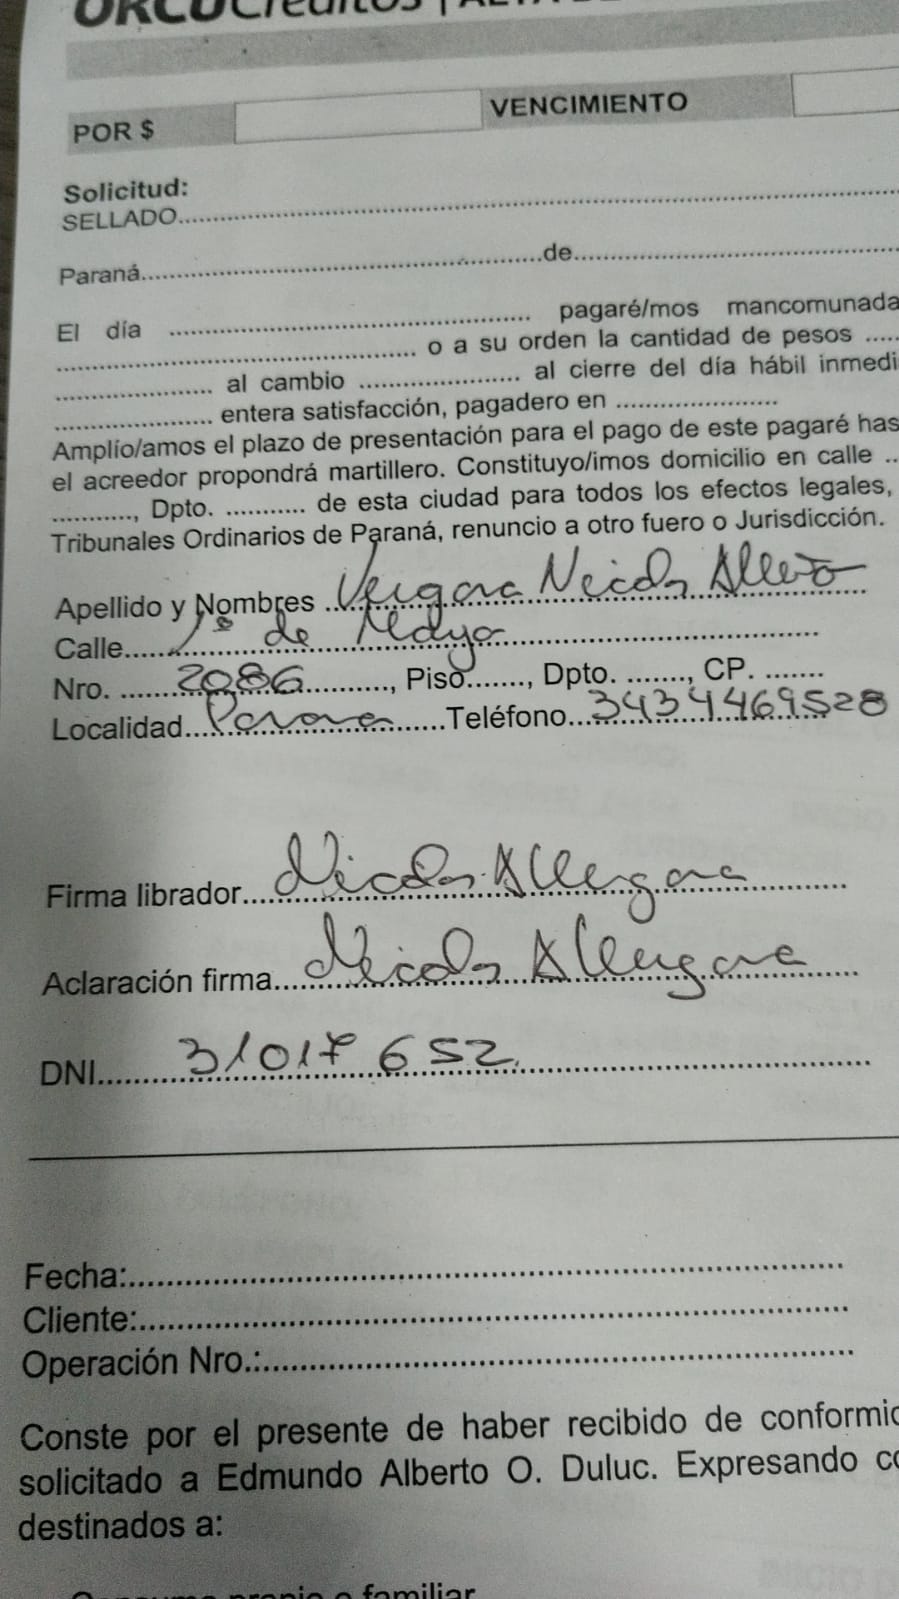 ORCOCréditos |
POR $ VENCIMIENTO
Solicitud:
SELLADO
Paraná de
El día pagaré/mos mancomunada
o a su orden la cantidad de pesos
al cambio al cierre del día hábil inmedi
entera satisfacción, pagadero en
Amplío/amos el plazo de presentación para el pago de este pagaré has
el acreedor propondrá martillero. Constituyo/imos domicilio en calle
, Dpto. de esta ciudad para todos los efectos legales,
Tribunales Ordinarios de Paraná, renuncio a otro fuero o Jurisdicción.
Apellido y Nombres Vergara Nicolas Alberto
Calle 1º de Mayo
Nro. 2086, Piso, Dpto. , CP.
Localidad Parana Teléfono 3434469528
Firma librador Nicolas A Vergara
Aclaración firma Nicolas A Vergara
DNI 31017652
Fecha:
Cliente:
Operación Nro.:
Conste por el presente de haber recibido de conformid
solicitado a Edmundo Alberto O. Duluc. Expresando co
destinados a:
Consumo propio o familiar